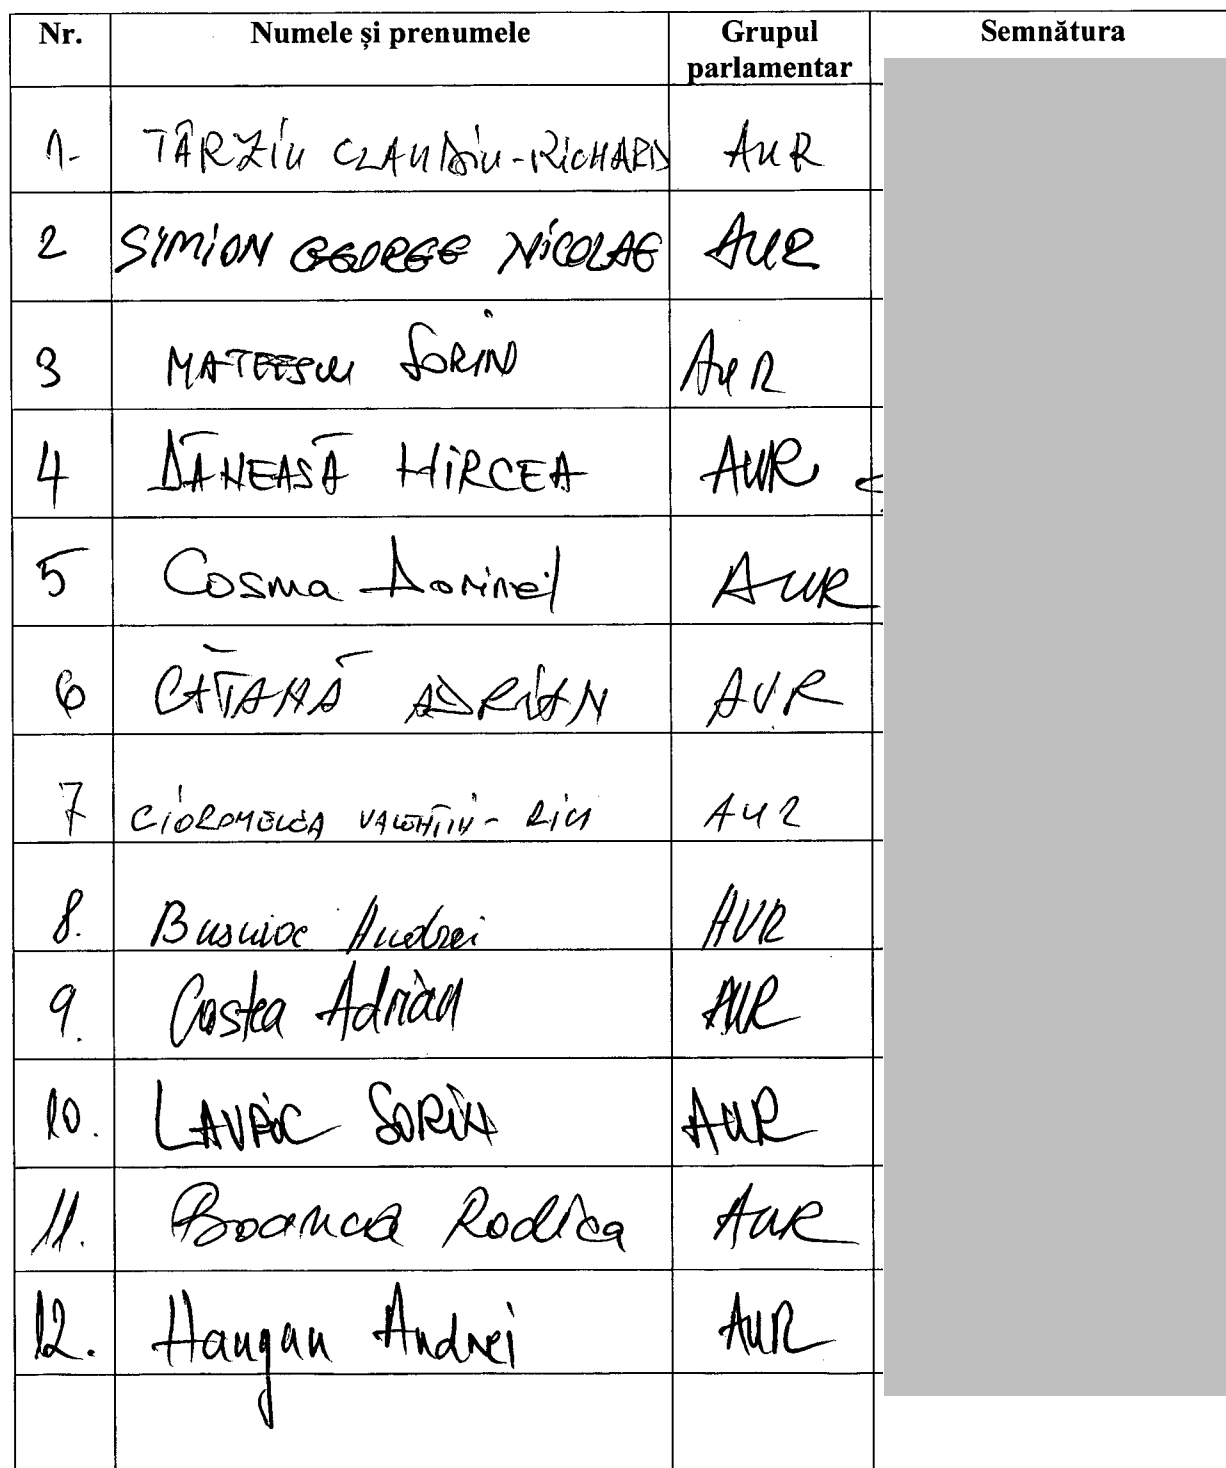 Nr. Numele și prenumele Grupul parlamentar Semnătura
1- TÂRZIU CLAUDIU-RICHARD AUR
2 SIMION GEORGE NICOLAE AUR
3 MATEESCU SORIN AUR
4 DĂNEASĂ MIRCEA AUR
5 Cosma Dorinel AUR
6 CĂTANĂ ADRIAN AUR
7 CIOROMELEA VALENTIN-RICU AUR
8. Busuioc Andrei AUR
9. Costea Adrian AUR
10. LAVRIC SORIN AUR
11. Boancă Rodica AUR
12. Hangan Andrei AUR